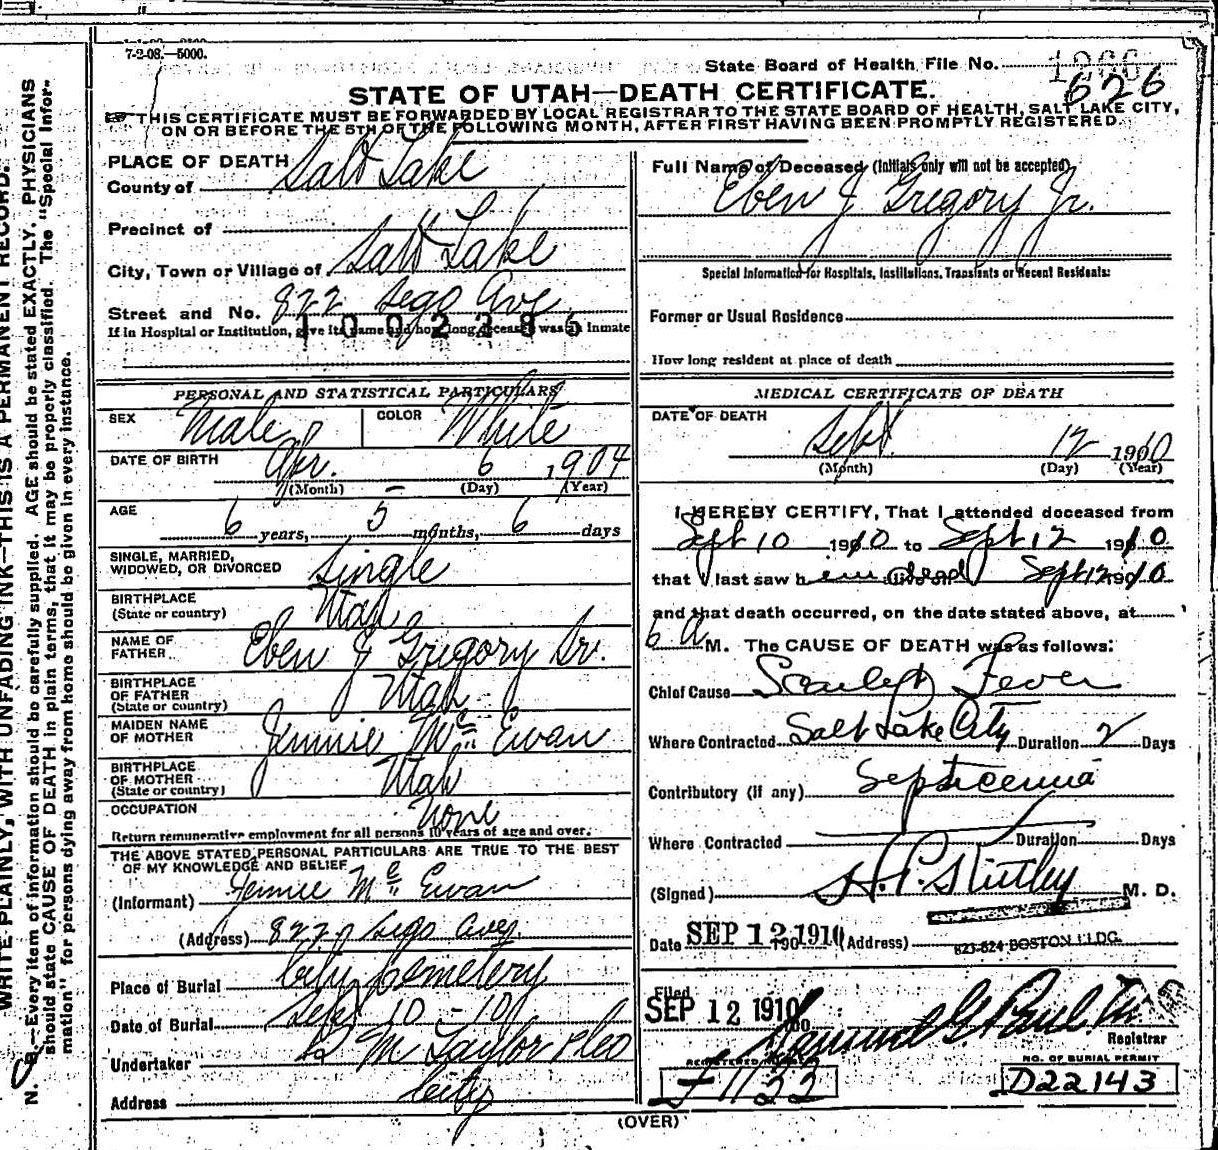 7-2-08.—5000.
State Board of Health File No. 626
STATE OF UTAH—DEATH CERTIFICATE.
THIS CERTIFICATE MUST BE FORWARDED BY LOCAL REGISTRAR TO THE STATE BOARD OF HEALTH, SALT LAKE CITY,
ON OR BEFORE THE 5TH OF THE FOLLOWING MONTH, AFTER FIRST HAVING BEEN PROMPTLY REGISTERED.
PLACE OF DEATH
County of Salt Lake
Precinct of
City, Town or Village of Salt Lake
Street and No. 822 Sego Ave
If in Hospital or Institution, give its name and how long deceased was an Inmate
1002385
PERSONAL AND STATISTICAL PARTICULARS
SEX Male COLOR White
DATE OF BIRTH Apr. 6 1904
(Month) (Day) (Year)
AGE 6 years, 5 months, 6 days
SINGLE, MARRIED,
WIDOWED, OR DIVORCED Single
BIRTHPLACE
(State or country) Utah
NAME OF
FATHER Eben J Gregory Sr.
BIRTHPLACE
OF FATHER
(State or country) Utah
MAIDEN NAME
OF MOTHER Jennie Mc Ewan
BIRTHPLACE
OF MOTHER
(State or country) Utah
OCCUPATION None
Return remunerative employment for all persons 10 years of age and over.
THE ABOVE STATED PERSONAL PARTICULARS ARE TRUE TO THE BEST
OF MY KNOWLEDGE AND BELIEF
(Informant) Jennie Mc Ewan
(Address) 822 Sego Ave.
Place of Burial City Cemetery
Date of Burial Sept 10 - 10
Undertaker M Taylor
Address City
Full Name of Deceased (Initials only will not be accepted)
Eben J Gregory Jr.
Special Information for Hospitals, Institutions, Transients or Recent Residents:
Former or Usual Residence
How long resident at place of death
MEDICAL CERTIFICATE OF DEATH
DATE OF DEATH
Sept. 12 1910
(Month) (Day) (Year)
I HEREBY CERTIFY, That I attended deceased from
Sept 10 1910 to Sept 12 1910
that I last saw h em dead Sept 12 1910
and that death occurred, on the date stated above, at
6 A M. The CAUSE OF DEATH was as follows:
Chief Cause Scarlet Fever
Where Contracted Salt Lake City Duration 2 Days
Contributory (if any) Septicemia
Where Contracted Duration Days
(Signed) M. D.
Date SEP 12 1910 (Address) 823-824 BOSTON BLDG.
Filed
SEP 12 1910 Samuel G Paul
Registrar
REGISTERED NUMBER
1122
NO. OF BURIAL PERMIT
D22143
(OVER)
WRITE PLAINLY, WITH UNFADING INK—THIS IS A PERMANENT RECORD.
N. B.—Every item of information should be carefully supplied. AGE should be stated EXACTLY. PHYSICIANS
should state CAUSE OF DEATH in plain terms, that it may be properly classified. The "Special Infor-
mation" for persons dying away from home should be given in every instance.